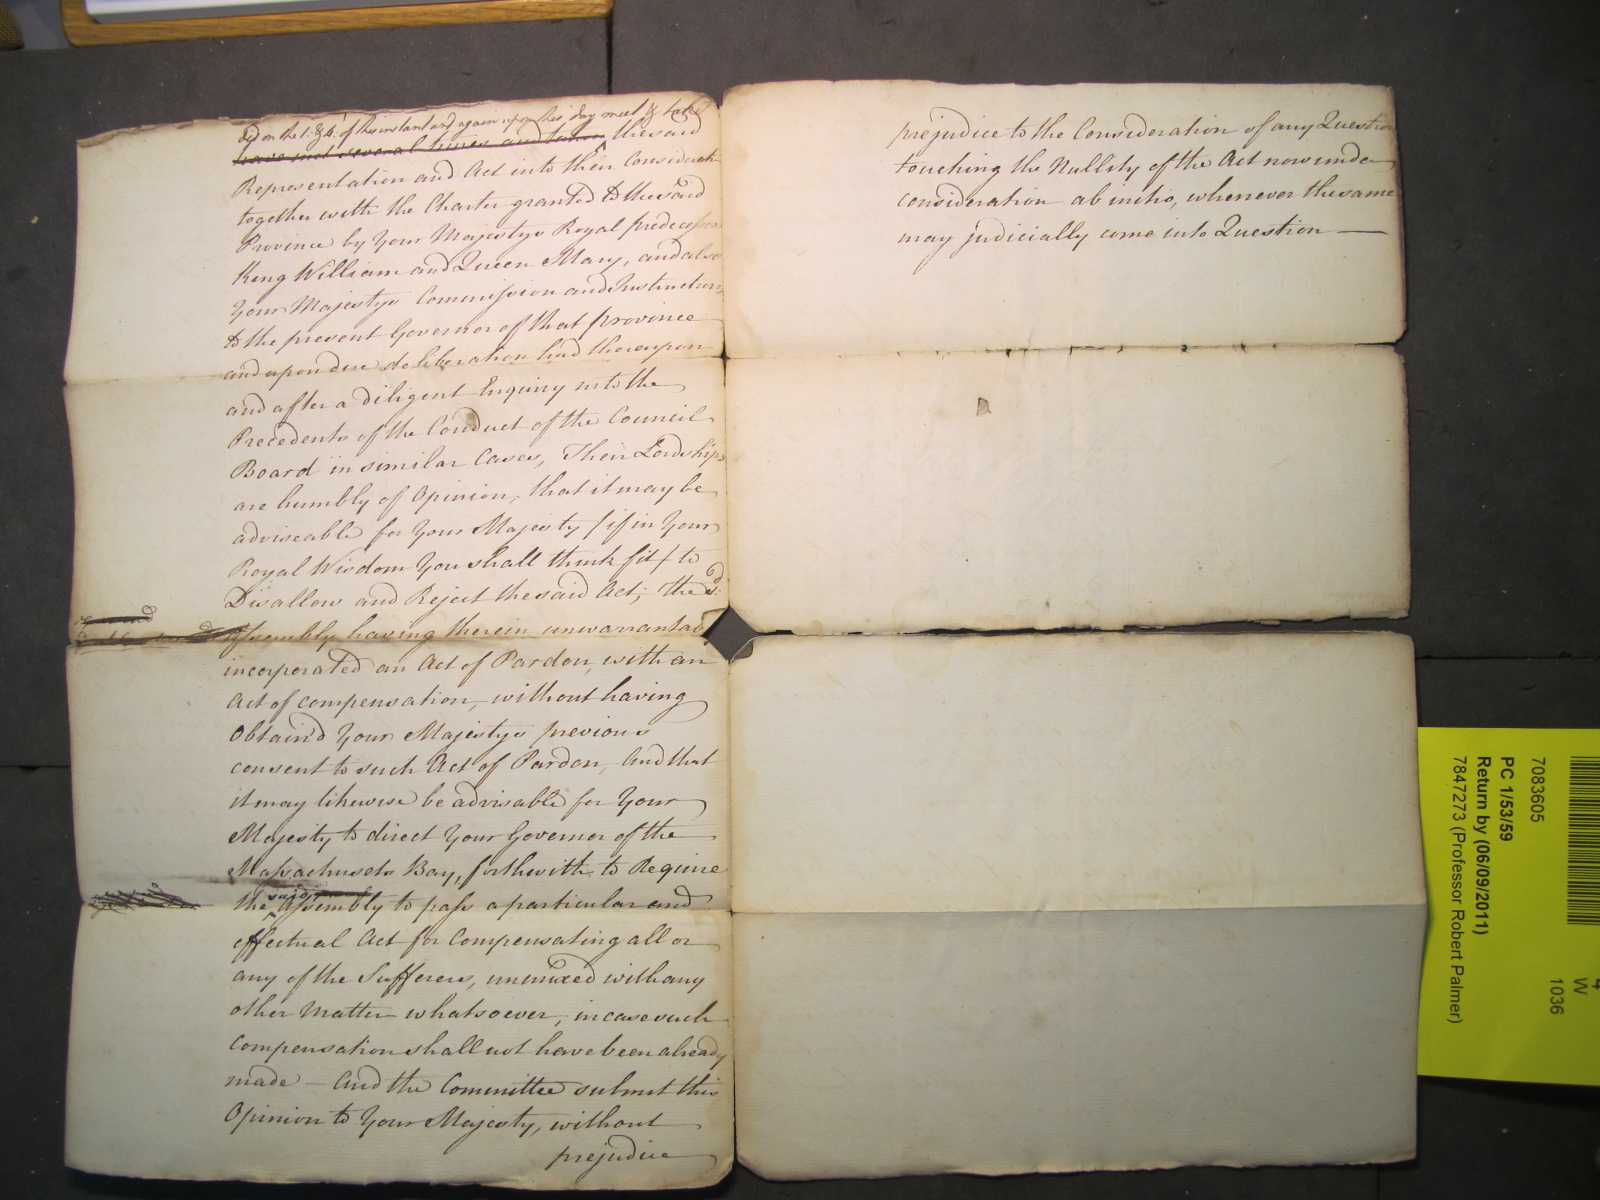 did on the 1: & 4: of this instant and again upon this day meet & take
have met several times and taken the said
Representation and Act into their Consideration
together with the Charter granted to the said
Province by Your Majestys Royal predecessors
King William and Queen Mary, and also
Your Majestys Commission and Instructions
to the present Governor of that province
and upon due deliberation had thereupon
and after a diligent Enquiry into the
Precedents of the Conduct of the Council
Board in similar Cases, Their Lordships
are humbly of Opinion, that it may be
adviseable for Your Majesty / if in Your
Royal Wisdom You shall think fit / to
Disallow and Reject the said Act; the sd:
Assembly having therein unwarrantably
incorporated an Act of Pardon, with an
Act of Compensation, without having
Obtain'd Your Majestys previous
consent to such Act of Pardon, And that
it may likewise be advisable for Your
Majesty to direct Your Governor of the
Massachusets Bay, forthwith to Require
the said Assembly to pass a particular and
effectual Act for Compensating all or
any of the Sufferers, unmixed with any
other Matter whatsoever, in case such
Compensation shall not have been already
made — And the Committee submit this
Opinion to Your Majesty, without
prejudice
prejudice to the Consideration of any Question
touching the Nullity of the Act now under
consideration ab initio, whenever the same
may judicially come into Question —
7083605
PC 1/53/59
Return by (06/09/2011)
7847273 (Professor Robert Palmer)
4
W
1036